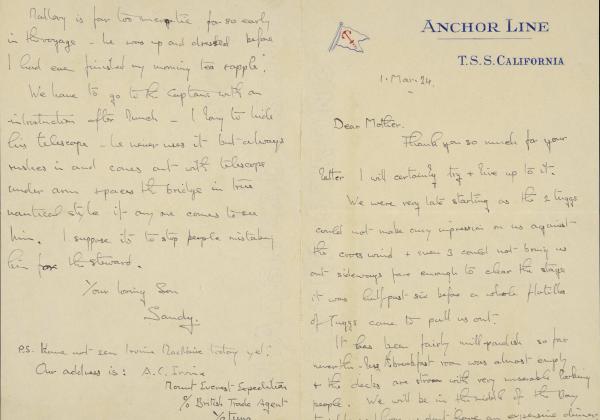 ANCHOR LINE
T.S.S. CALIFORNIA
1. Mar. 24
Dear Mother.
Thank you so much for your
letter I will certainly try + live up to it.
We were very late starting as the 2 tuggs
could not make any impression on us against
the cross wind + even 3 could not bring us
out sideways far enough to clear the stage
it was half past six before a whole flotilla
of Tuggs came to pull us out.
It has been fairly millpondish so far
neverthe-less breakfast room was almost empty
+ the decks are strewn with very miserable looking
people. We will be in the middle of the Bay
Mallory is far too energetic for so early
in the voyage - he was up and dressed before
I had even finished my morning tea + apple!
We have to go to the Captain with an
introduction after lunch - I long to hide
his telescope - he never uses it but always
rushes in and comes out with telescope
under arm + paces the bridge in true
nautical style if any one comes to see
him. I suppose its to stop people mistaking
him for the steward.
Your loving Son
Sandy.
P.S. Have not seen Irvine today yet!
Our address is: A.C. Irvine
Mount Everest Expedition
c/o British Trade Agent
Yatung